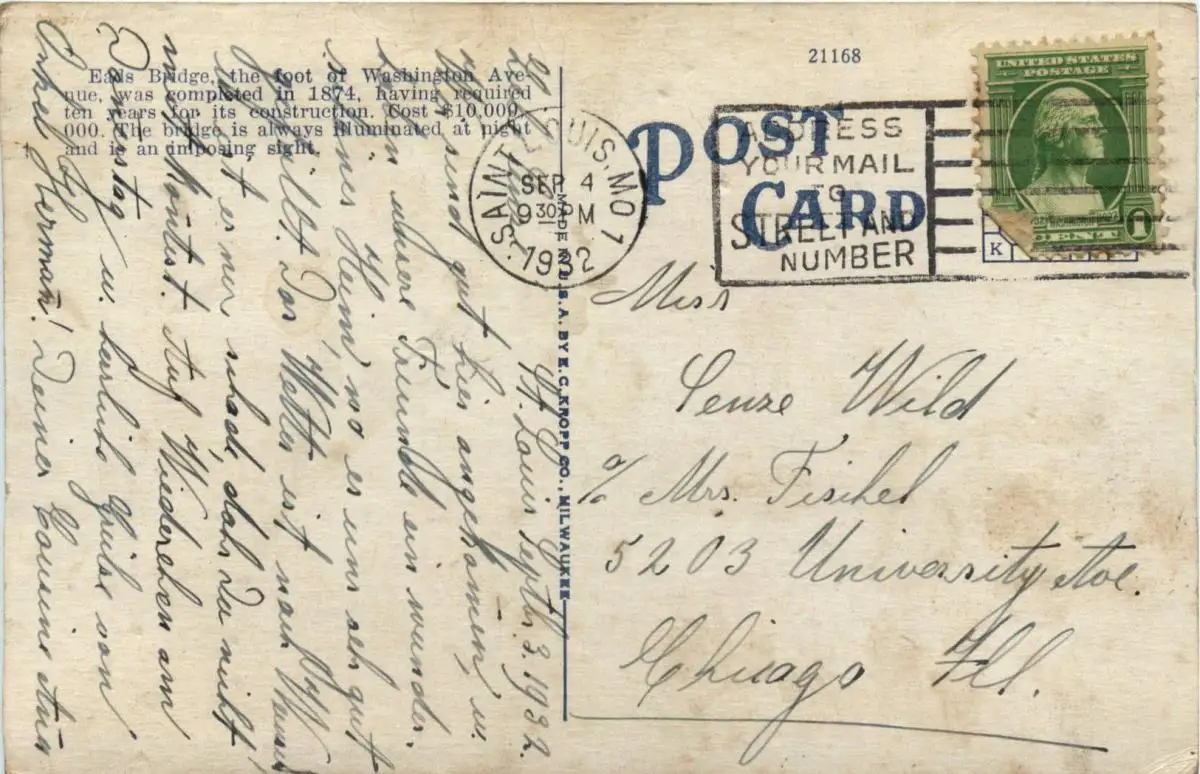 21168
Eads Bridge, the foot of Washington Ave-
nue, was completed in 1874, having required
ten years for its construction. Cost $10,000,
000. The bridge is always illuminated at night
and is an imposing sight.
St. Louis Septb. 3. 1932.
sind gut hier angekom̄en, u.
haben unsere Freunde ein wunder-
schönes Heim, wo es uns sehr gut
gefällt. Das Wetter ist nach Wunsch
ist es nur schade, daß Du nicht
mit kon̄test. Auf Wiedersehen am
Dienstag u. herzliche Grüße von
Onkel Herman! Deiner Cousine
SAINT LOUIS, MO. 1
SEP 4
9 30 PM
1932
MADE IN U.S.A. BY E.C. KROPP CO., MILWAUKEE
POST
CARD
ADDRESS
YOUR MAIL
TO
STREET AND
NUMBER
UNITED STATES
POSTAGE
1
K
Miss
Senze Wild
% Mrs. Fischel
5203 University Ave.
Chicago Ill.